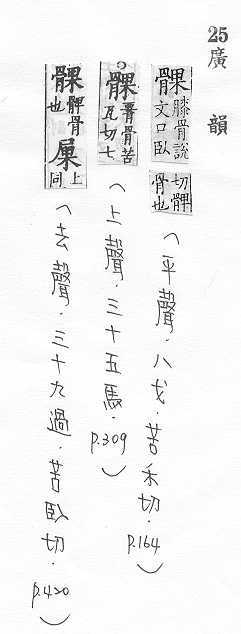 25廣韻
髁膝骨說文口臥切髀骨也(平聲．八戈．苦禾切．p.164)
髁骨苦瓦切七(上聲．三十五馬．p.309)
髁髀骨也上同(去聲．三十九過．苦臥切．p.420)